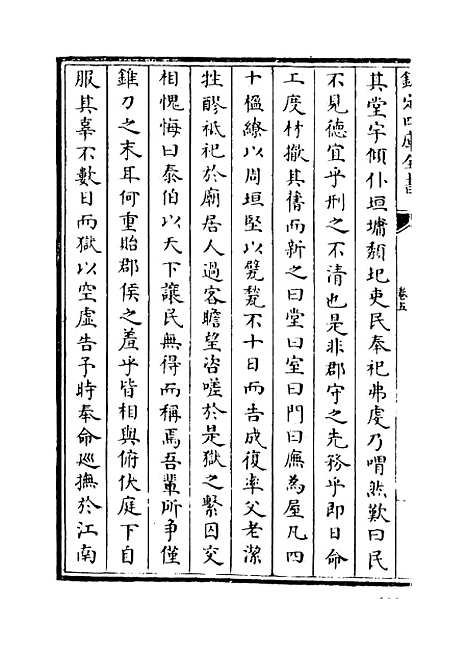 欽定四庫全書
卷五
其堂宇傾仆垣墉頽圮吏民奉祀弗虔乃喟然歎曰民
不見德宜乎刑之不清也是非郡守之先務乎即日命
工度材撤其舊而新之曰堂曰室曰門曰廡為屋凡四
十楹繚以周垣堅以甓甃不十日而告成復率父老潔
牲醪祗祀於廟居人過客瞻望咨嗟於是獄之繫囚交
相愧悔曰泰伯以天下讓民無得而稱焉吾輩所争僅
錐刀之末耳何重貽郡侯之羞乎皆相與俯伏庭下自
服其辜不數日而獄以空虚告予時奉命巡撫於江南